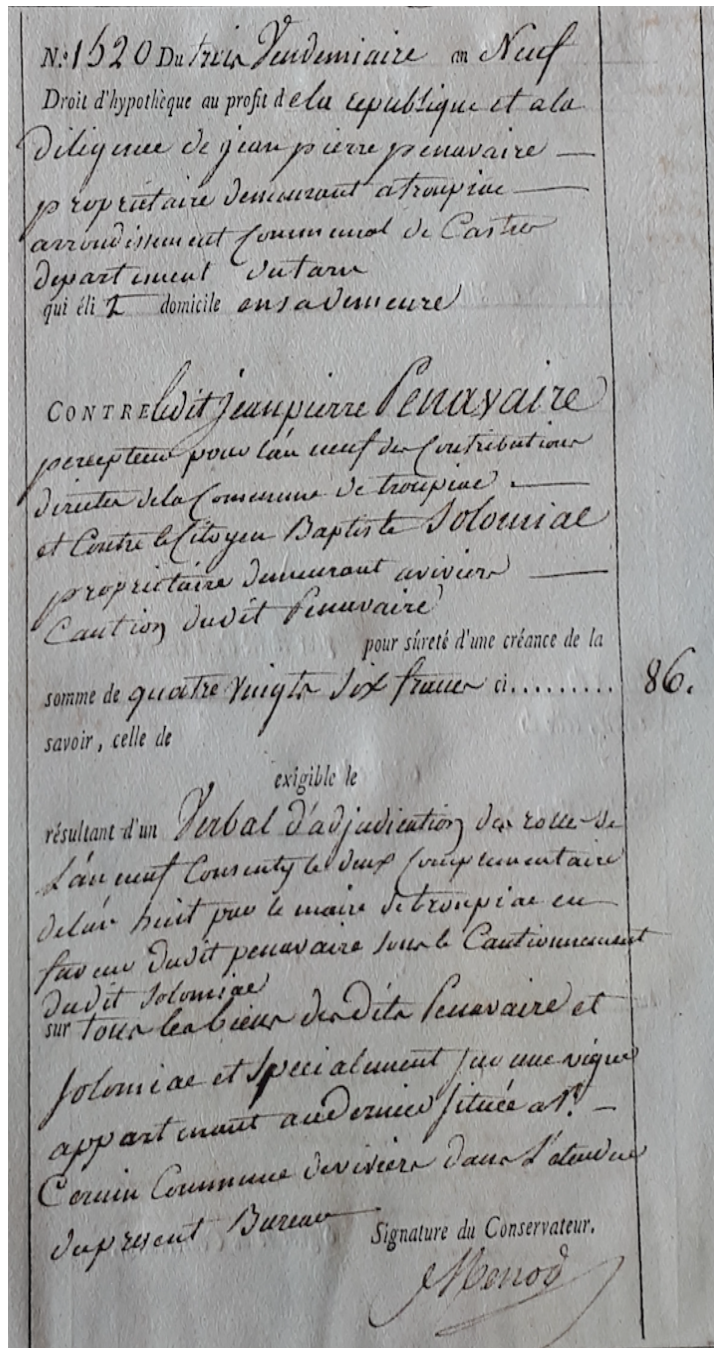 N.º 1520 Du trois Vendemiaire an Neuf
Droit d'hypothèque au profit de la republique et a la
diligence de jean pierre penavaire —
propriétaire demeurant a troupiac —
arrondissement Communal de Castres
departement du tarn
qui éli t domicile en sa demeure
CONTRE ledit jean pierre Penavaire
percepteur pour l'an neuf des Contributions
directes de la Commune de troupiac . —
et Contre le Citoyen Baptiste Solomiac
propriétaire demeurant a viviers —
Caution dudit Penavaire
pour sûreté d'une créance de la
somme de quatre vingts six francs ci......... 86.
savoir, celle de
exigible le
résultant d'un Verbal d'adjudication des rolles de
L'an neuf Consenty le deux Complementaire
de l'an huit par le maire de troupiac en
faveur dudit penavaire sous le Cautionnement
dudit Solomiac
sur tous les biens des dits Penavaire et
Solomiac et specialement sur une vigne
appartenant au Dernier située a St. —
Cernin Commune de viviers dans L'etendue
du present Bureau
Signature du Conservateur.